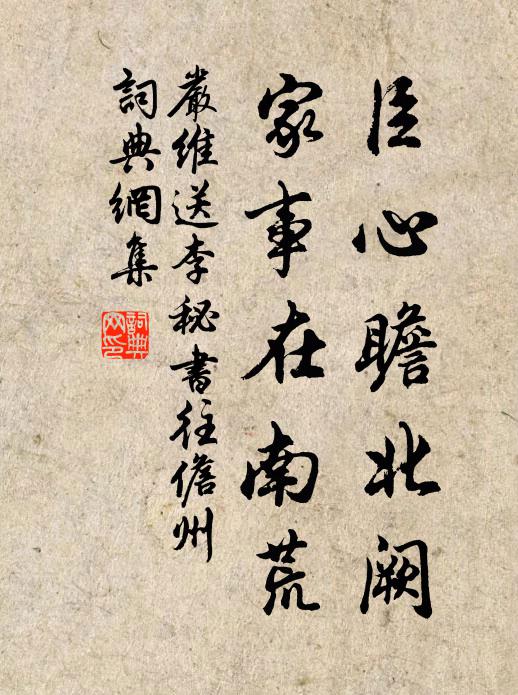 臣心瞻北闕
家事在南荒
嚴維送李秘書往儋州
詞典網集
詞典
网印